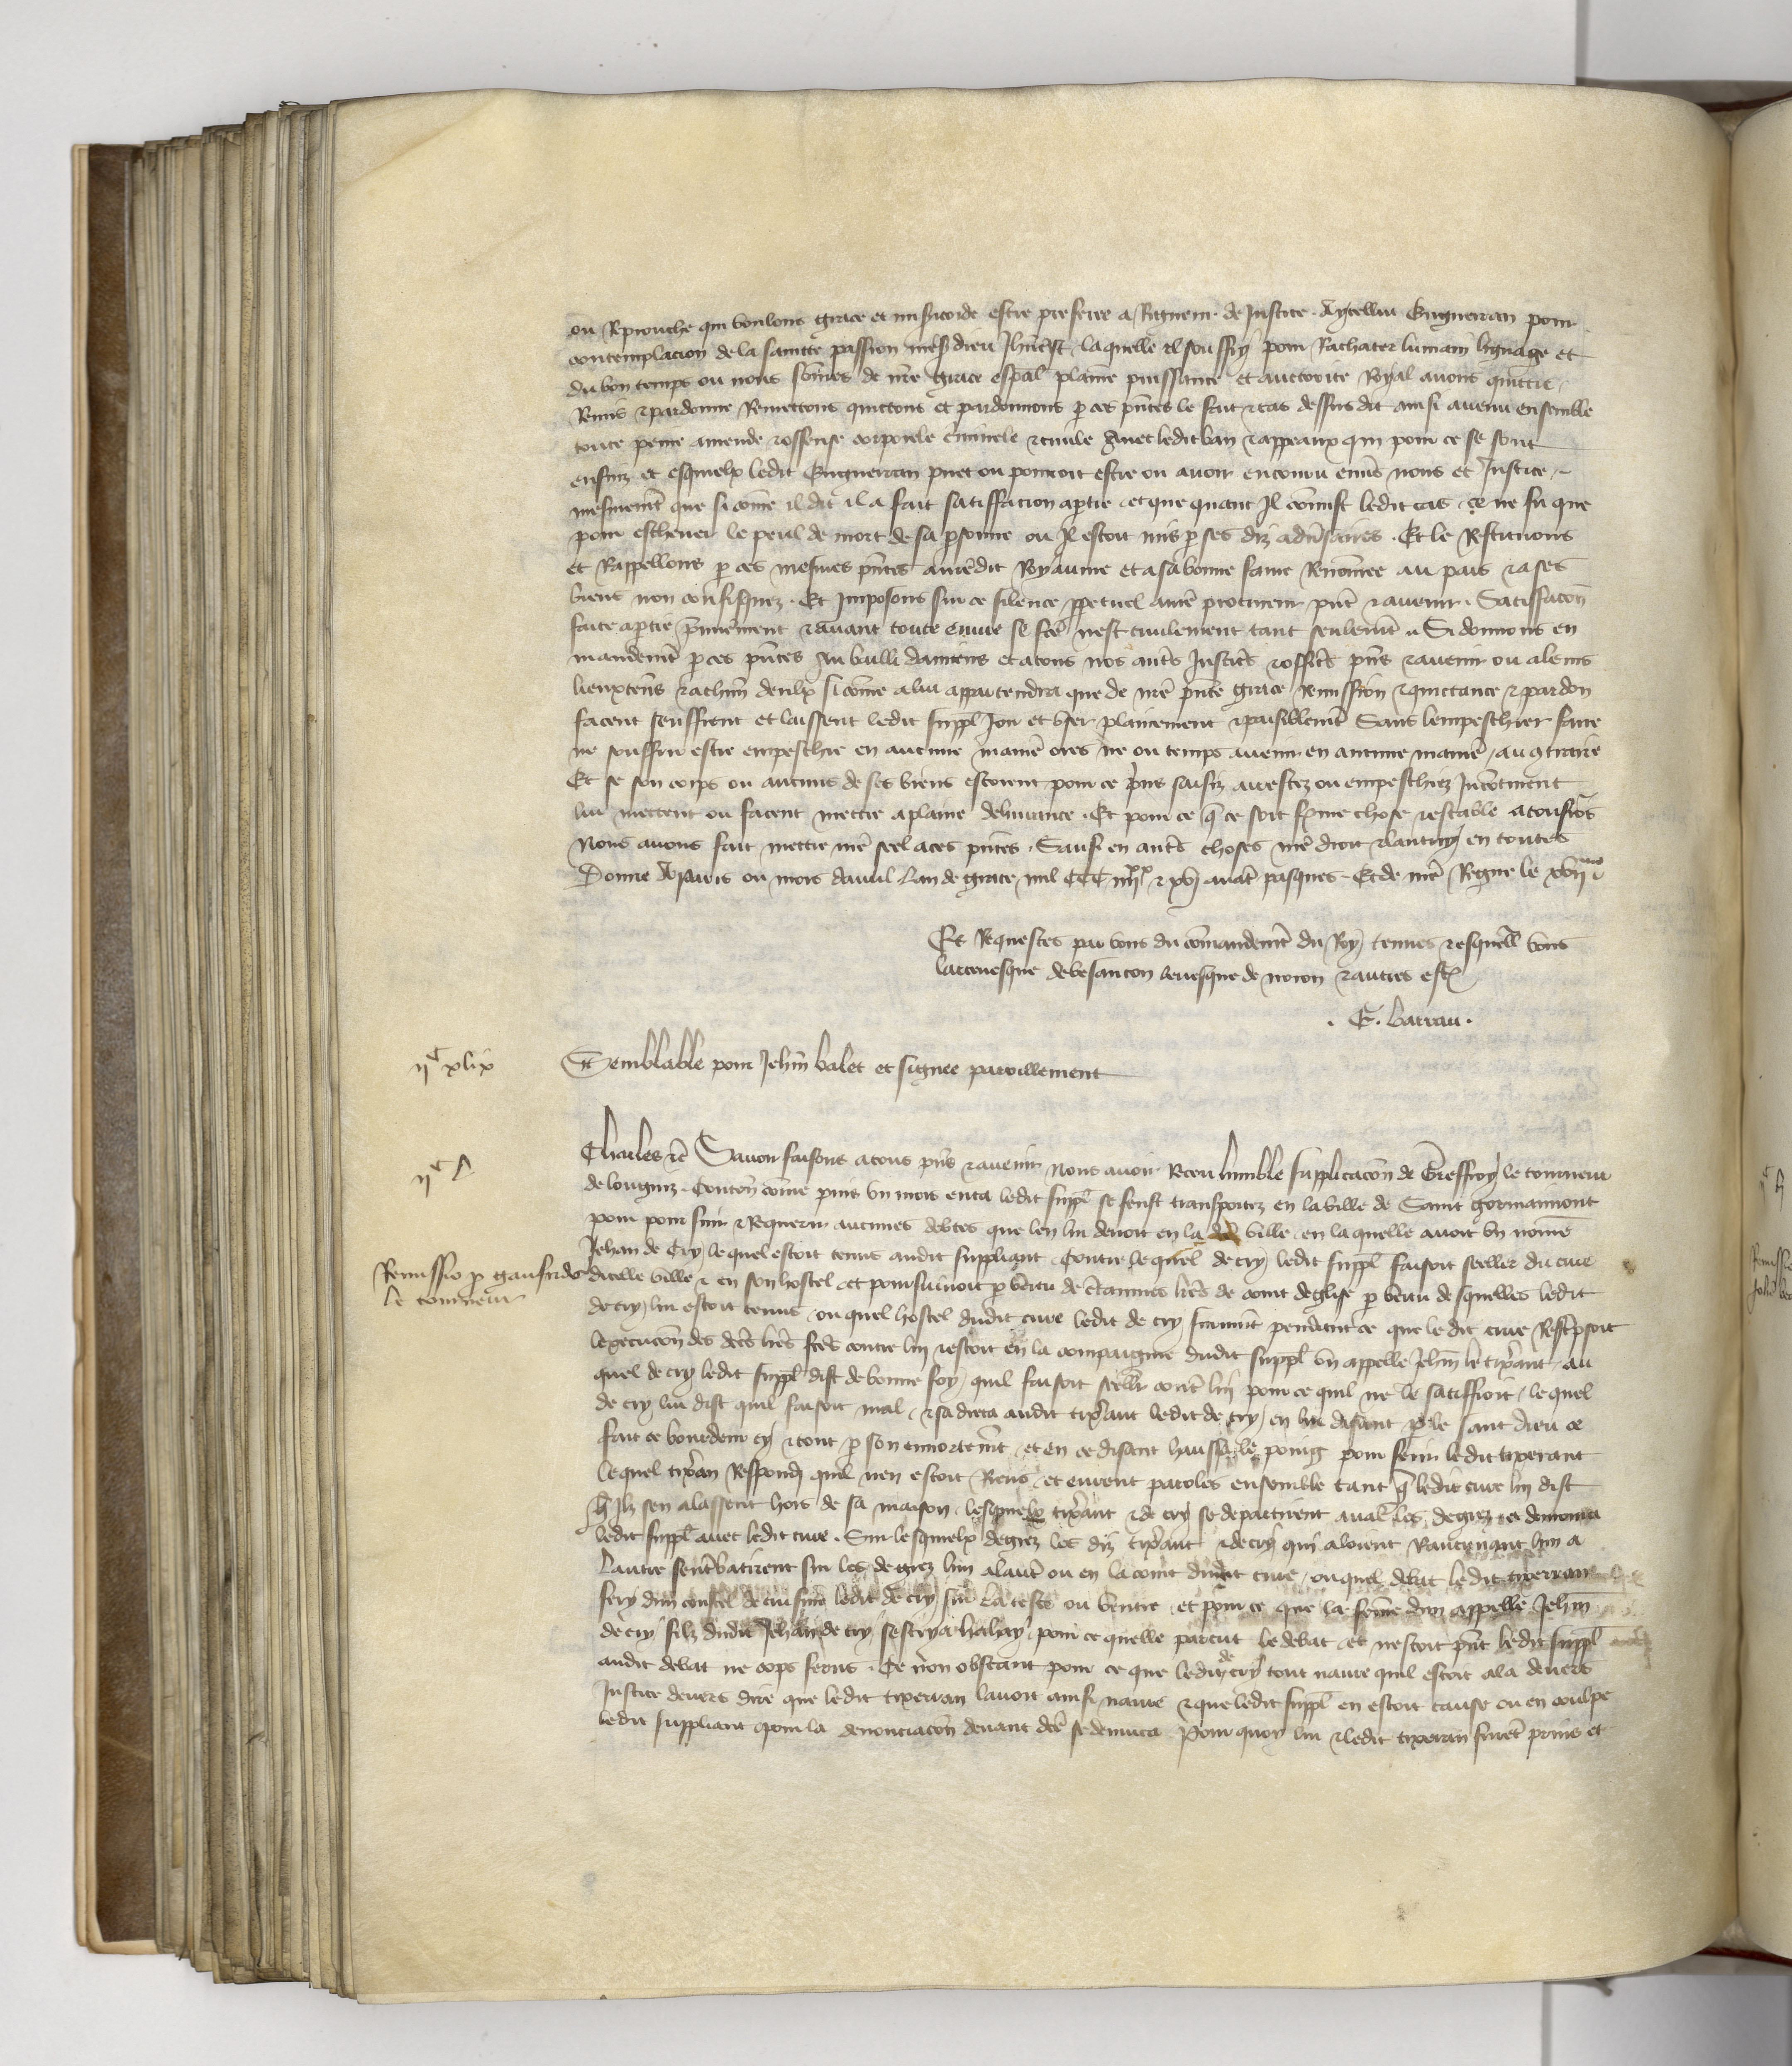 ou reprouche qui voulons grace et misericorde estre preferee a rigueur de justice. Aycellui Enguerran pour
contemplacion de la saincte passion nre sr dieu Jhucrist laquelle il souffry pour rachater lumain lignage et
du bon temps ou nous sommes de nre grace espal plaine puissance et auctorite royal avons quictie
remis & pardonne remettons quictons et pardonnons p ces pntes le fait & cas dessus dit ainsi avenu ensemble
toute peine amende & offense corporele crimiele & civile avec ledit ban & appeaux qui pour ce se sont
ensuiz et esquielx ledit Enguerran puet ou pourroit estre ou avoir encouru envs nous et justice
mesmemt que si come il dit il a fait satiffacion a ptie et que quant il comist ledit cas ce ne fu que
pour eschever le peril de mort de sa psonne ou il estoit mis p ses diz advsaires. Et le restituons
et rappellons p ces mesmes pntes a nredit royaume et a sa bonne fame renomee au pais & a ses
biens non confisquez. Et imposons sur ce silence ppetuel a nre procureur pnt & avenir. Satisfacon
faite a ptie premierement & avant toute euvre se fce nest civilement tant seulemt. Si donnons en
mandemt p ces pntes au bailli damiens et a touz nos auts justics & offics pns & avenir ou a leurs
lieuxtens & a chun deulx si come a lui appartendra que de nre pnte grace remission & quictance & pardon
facent seuffrent et laissent ledit suppl joir et user plainement & paisiblemt sans lempeschier faire
ne souffrir estre empeschie en aucune maniere ores ne ou temps avenir en aucune maniere au contraire
Et se son corps ou aucuns de ses biens estoient pour ce prins saisiz arrestez ou empeschiez incontinent
lui mettent ou facent mettre a plaine delivrance. Et pour ce q ce soit ferme chose & estable a tousjors
Nous avons fait mettre nre seel a ces pntes. Sauf en auts choses nre droit & lautruy en toutes
Donne a Paris ou mois davril lan de grace mil CCC iiiixx & xvj avat pasques. Et de nre regne le xvije
Es requestes par vous du comandemt du roy tenues esquelles vous
larcevesque de besancon levesque de noion & autres estiez
. E. barrau.
ijC xlix
Semblable pour Jehan valet et signee pareillement
ijC l
Charles &c Savoir faisons a tous pns & avenir nous avoir receu lumble supplicacon de Gieffroy le tourneur
de lougniz. Contenant come puis un mois en ca ledit suppl se feust transportez en la ville de Saint Gormainmont
pour poursuir & requerir aucunes debtes que len lui devoit en la dce ville en laquelle avoit un nome
Jehan de Cry lequel estoit tenus audit suppliant contre lequel de cry ledit suppl faisoit seeller du cure
Remissio p gaufrido
le tourneur
dicelle ville & en son hostel et poursuivoit p vertu de ctaines lres de court deglise p vertu desquelles ledit
de cry lui estoit tenus ouquel hostel dudit cure ledit de cry survint pendant ce que le dit cure rescpsoit
lexecucon des dces lres fces contre lui & estoit en la compaignie dudit suppl un appelle Jehan le tixerant au
quel de cry ledit suppl dist de bonne foy quil faisoit seeller cont lui pour ce quil ne le satiffioit lequel
de cry lui dist quil faisoit mal & sadreca audit tixerant ledit de cry en lui disant p le sanc dieu ce
fait ce bourdeur cy & tout p son enhortemt et en ce disant haussa le poing pour ferir ledit tixerant
lequel tixeran respondi quil nen estoit riens et eurent paroles ensemble tant q ledit cure lui dist
q ilz sen alassent hors de sa maison lesquielx tixerant & de cry se departirent aval les degrez et demoura
ledit suppl avec ledit cure. Sur lesquielx degrez les diz tixerant & de cry qui aloient rancunant lun a
lautre sentrebatirent sur les degrez lun a laut ou en la court dudit cure ouquel debat ledit tixerran
fery dun coustel de cuisine ledit de cry sur la teste ou ventre et pour ce que la feme dun appelle Jehan
de cry filz dudit Jehan de cry sescrya hahay pour ce quelle parcut le debat et nestoit pnt ledit suppl
audit debat ne cops ferus. Ce non obstant pour ce que ledit de cry tout navre quil estoit ala devers
justice devers dire que ledit tixerran lavoit ainsi navre & que ledit suppl en estoit cause ou en coulpe
ledit suppliant pour la denonciacon devant dce se demuca. Pour quoy lui & ledit tixeran furet prins et